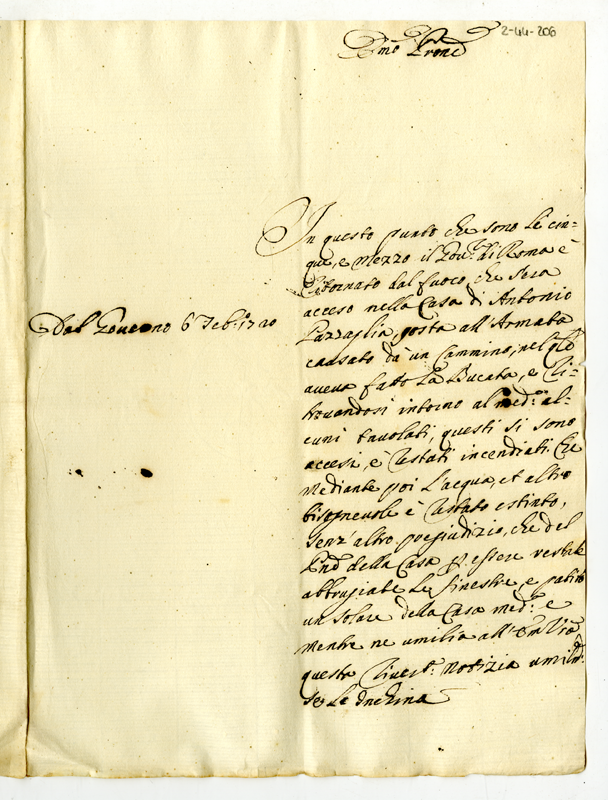 2-44-206
Emo Prone
In questo punto che sono le cin=
que, e mezzo il Gov.r di Roma è
ritornato dal fuoco, che s'era
acceso nella Casa di Antonio
Pazzaglia, posta all'Armata
causato da un Cammino, nel qle
aveva fatto la Bucata, e ri=
trovandosi intorno al med.o al=
cuni tavolati, questi si sono
accesi, e restati incendiati. Che
mediante poi l'acqua, et altro
bisognevole è restato estinto,
senz'altro pregiudizio, che del
Pnd della Casa p. essere restate
abbrugiate le finestre, e patito
un solare della Casa med.a e
mentre ne umilia all'Em Vra
questa river.te notizia umilm.te
se le inchina
Dal Governo 6 Feb.o 1720